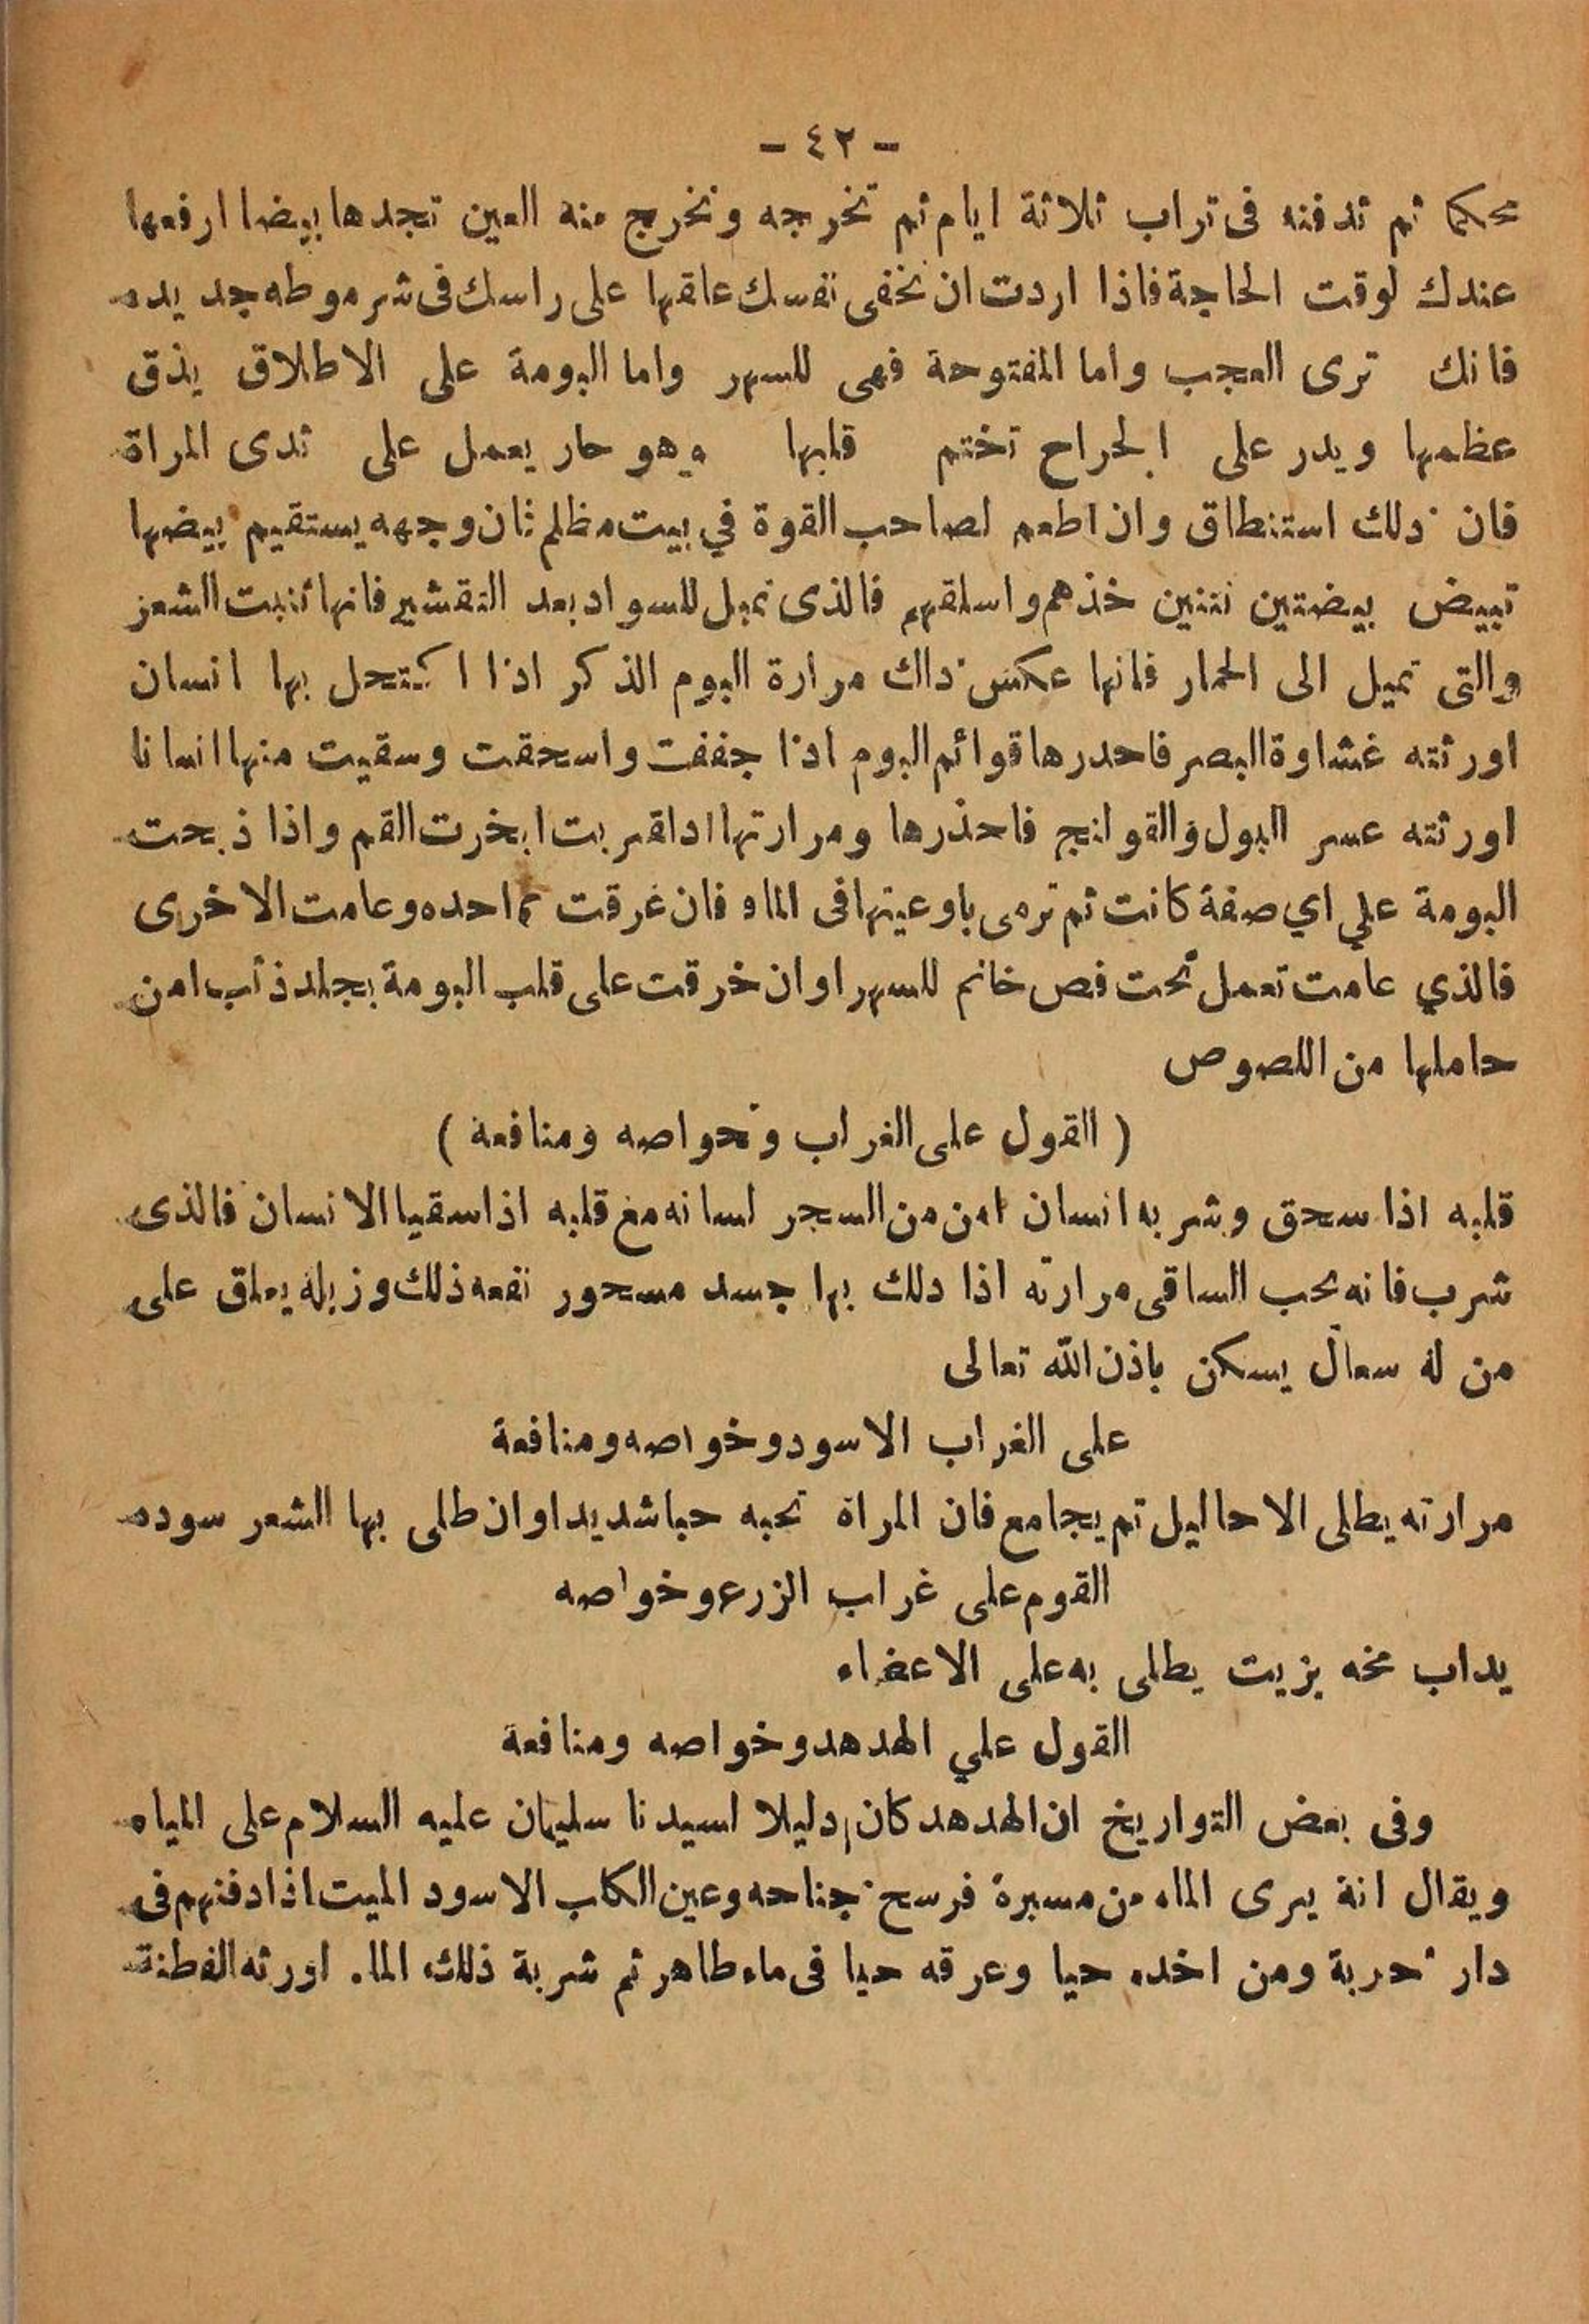 - ٤٢ -
محكما ثم تدفنه فى تراب ثلاثة ايام ثم تخرجه وتخرج منه العين تجدها بيضا ارفعها
عندك لوقت الحاجة فاذا اردت ان تخفى نفسك علقها على راسك فى شرموطه جديده
فانك ترى العجب واما المفتوحة فهى للسهر واما البومة على الاطلاق يذق
عظمها ويدر على الجراح تختم قلبها وهو حار يعمل على ثدى المراة
فان ذلك استنطاق وان اطعم لصاحب القوة في بيت مظلم ثان وجهه يستقيم بيضها
تبيض بيضتين نتنين خذهم واسلقهم فالذى تميل للسواد بعد التقشير فانها تنبت الشعر
والتى تميل الى الحمار فانها عكس ذاك مرارة البوم الذكر اذا اكتحل بها انسان
اورثته غشاوة البصر فاحدرها قوائم البوم اذا جففت واسحقت وسقيت منها انسانا
اورثته عسر البول والقوانج فاحذرها ومرارتها اداقربت ابخرت القم واذا ذبحت
البومة علي اي صفة كانت ثم ترمى باوعيتها فى الماء فان غرقت احده وعامت الاخرى
فالذي عامت تعمل تحت فص خاتم للسهر اوان خرقت على قلب البومة بجلد ذئب امن
حاملها من اللصوص
( القول على الغراب وخواصه ومنافعة )
قلبه اذا سحق وشر به انسان امن من السجر لسانه مع قلبه اذا سقيا الانسان فالذى
شرب فانه يحب الساقى مرارته اذا دلك بها جسد مسحور نفعه ذلك وزبله يعلق على
من له سعال يسكن باذن الله تعالى
على الغراب الاسود وخواصه ومنافعة
مرارته يطلى الاحاليل تم يجامع فان المراة تحبه حبا شديدا وان طلى بها الشعر سوده
القوم على غراب الزرع وخواصه
يداب مخه بزيت يطلى به على الاعضاء
القول علي الهدهد وخواصه ومنافعة
وفى بعض التواريخ ان الهدهد كان دليلا لسيدنا سليمان عليه السلام على المياه
ويقال انة يرى الماء من مسيرة فرسح جناحه وعين الكلب الاسود الميت اذا دفنهم فى
دار خربة ومن اخده حيا وعرقه حيا فى ماء طاهر ثم شربة ذلك الماء اورثه الفطنة